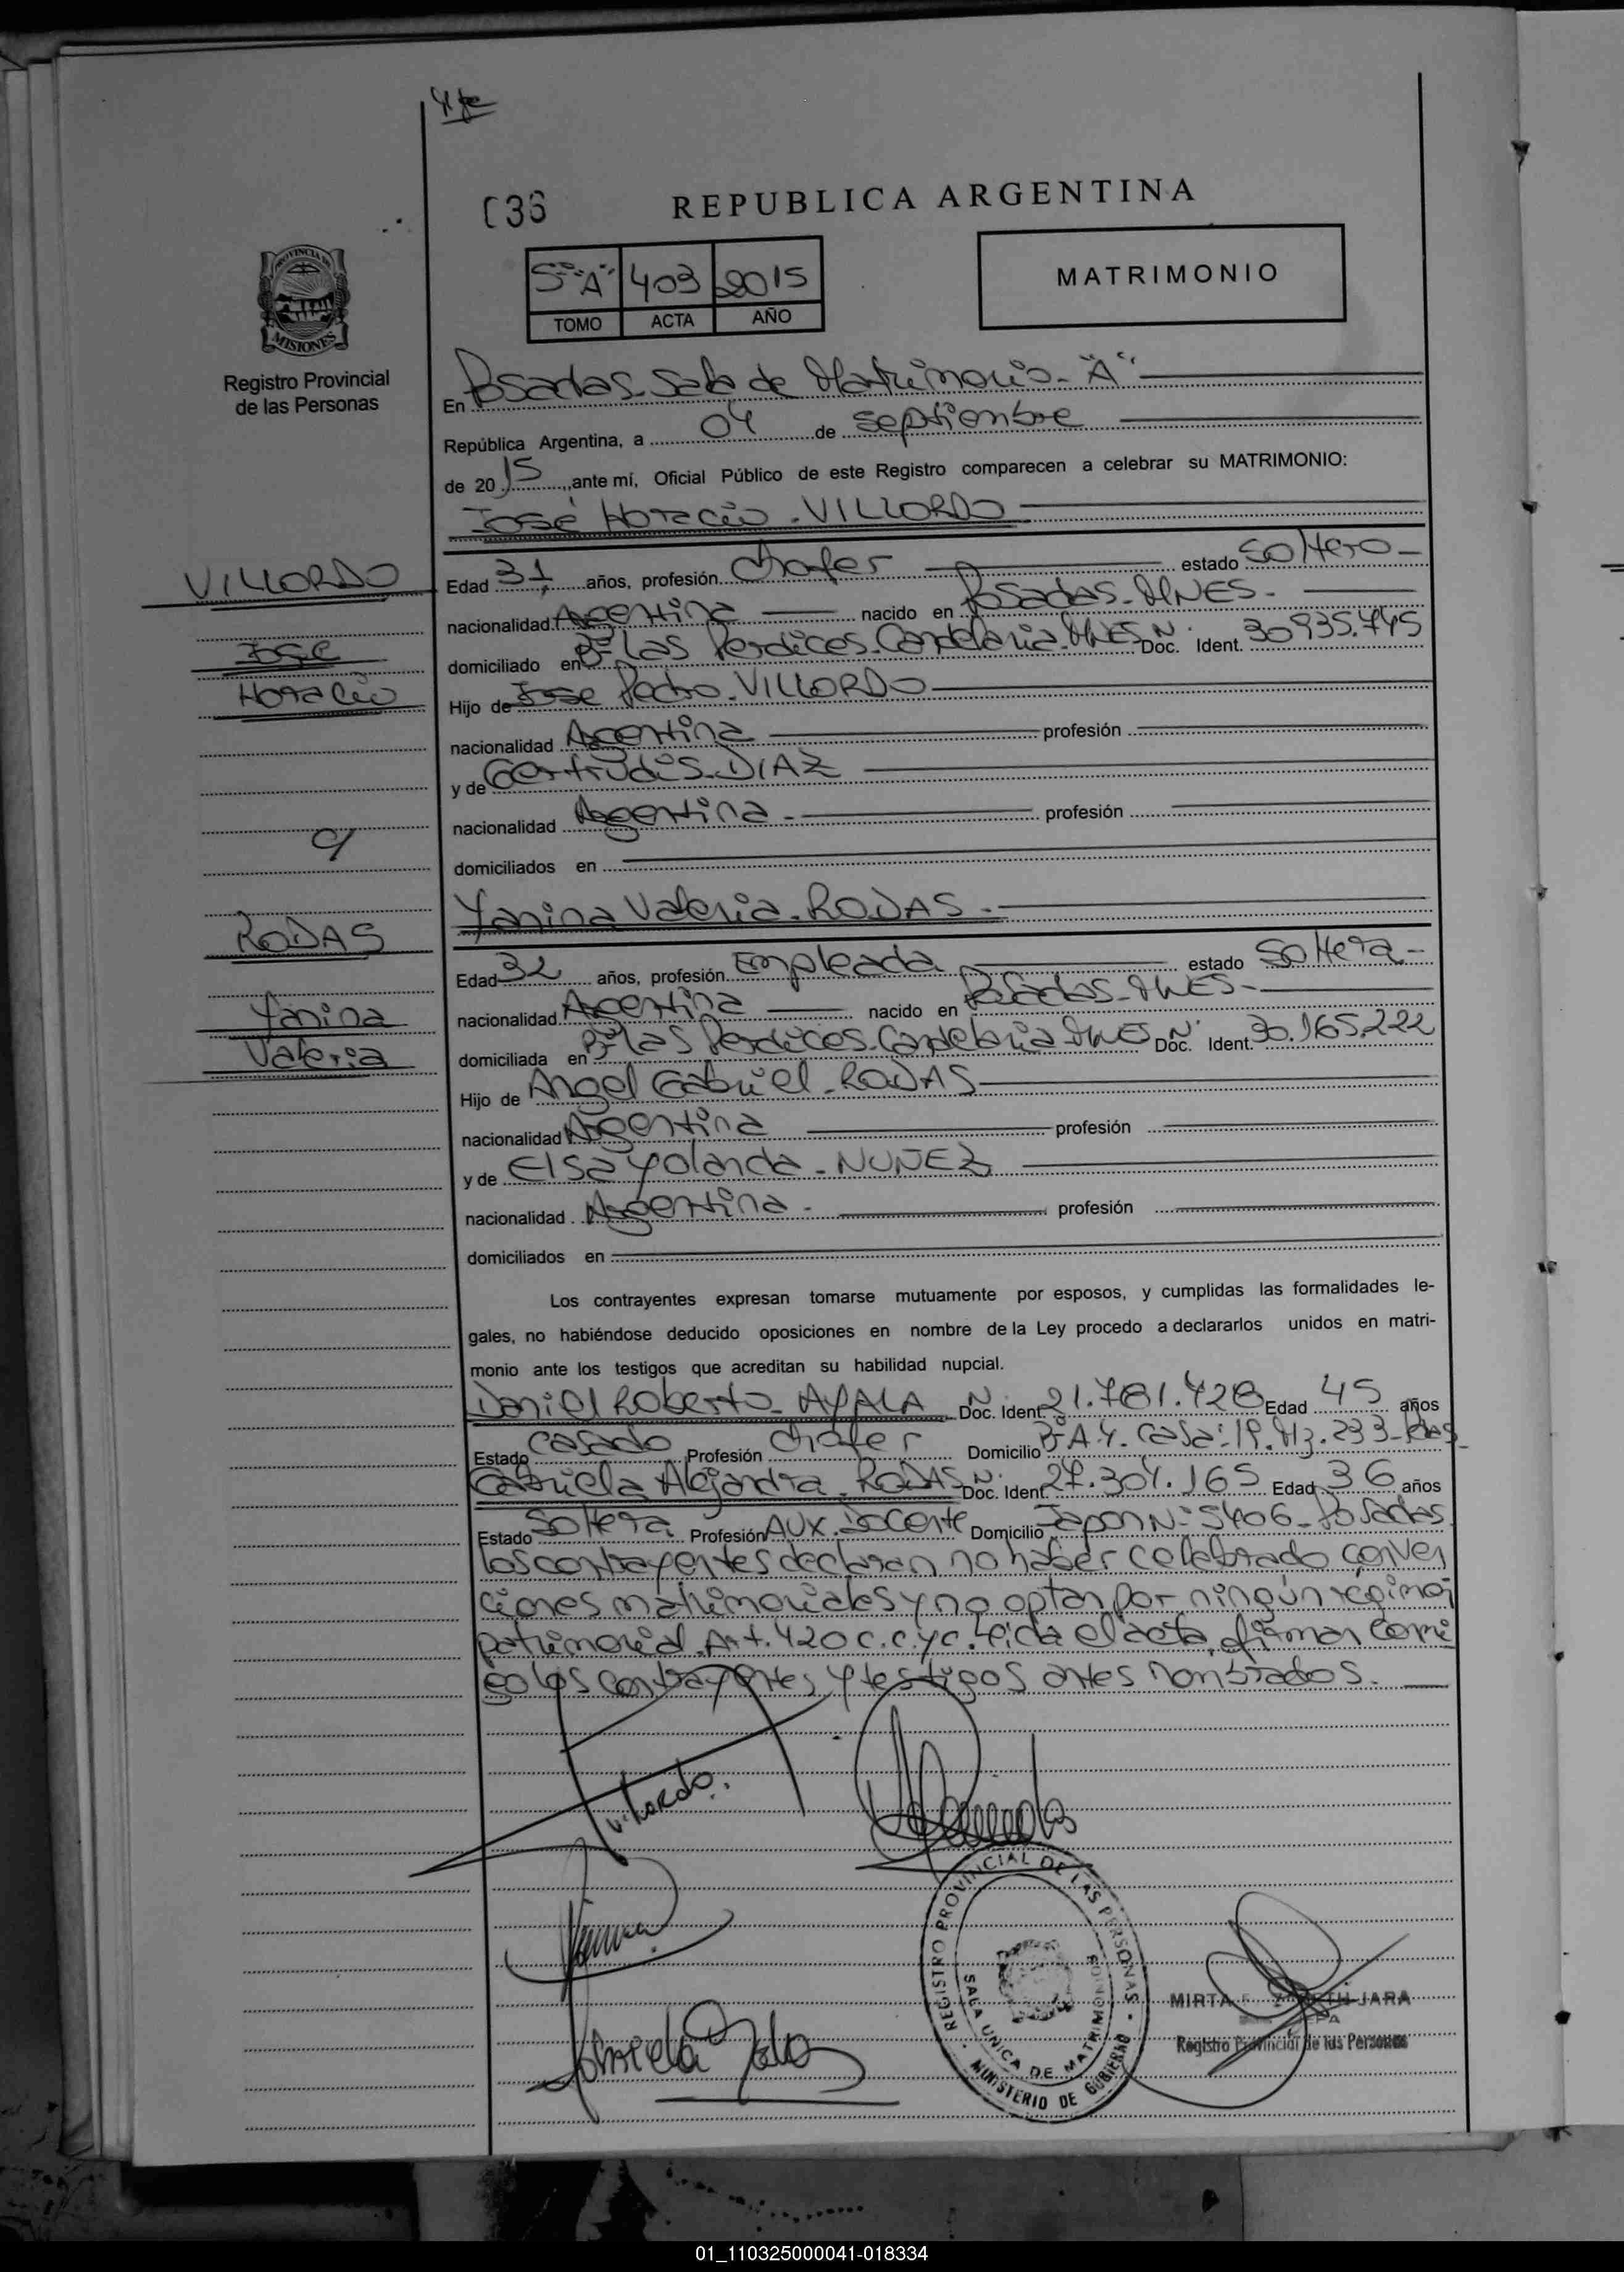 036
REPUBLICA ARGENTINA
5º "A" 403 2015
TOMO ACTA AÑO
MATRIMONIO
PROVINCIA DE
MISIONES
Registro Provincial
de las Personas
En Posadas. Sala de Matrimonio - "A"
República Argentina, a 04 de septiembre
de 2015, ante mí, Oficial Público de este Registro comparecen a celebrar su MATRIMONIO:
José Horacio - VILLORDO
VILLORDO
José
Horacio
c/
RODAS
Yanina
Valeria
Edad 31 años, profesión Chofer estado Soltero -
nacionalidad Argentina nacido en Posadas - MNES -
domiciliado en Bº Las Perdices. Candelaria. MNES Nº Doc. Ident. 30935.745
Hijo de José Pedro - VILLORDO
nacionalidad Argentina profesión
y de Gertrudis - DIAZ
nacionalidad Argentina - profesión
domiciliados en
Yanina Valeria - RODAS -
Edad 32 años, profesión Empleada estado Soltera -
nacionalidad Argentina nacido en Posadas - MNES -
domiciliada en Bº Las Perdices. Candelaria MNES Nº Doc. Ident. 30.165.222
Hijo de Angel Gabriel - RODAS
nacionalidad Argentina profesión
y de Elsa Yolanda - NUÑEZ
nacionalidad Argentina - profesión
domiciliados en
Los contrayentes expresan tomarse mutuamente por esposos, y cumplidas las formalidades le-
gales, no habiéndose deducido oposiciones en nombre de la Ley procedo a declararlos unidos en matri-
monio ante los testigos que acreditan su habilidad nupcial.
Daniel Roberto - AYALA - Nº Doc. Ident. 21.781.728 Edad 45 años
Estado Casado Profesión Chofer Domicilio Bº A.4. Casa: 19. Mz. 233 - Pdas -
Gabriela Alejandra - RODAS - Nº Doc. Ident. 27.304.165 Edad 36 años
Estado Soltera Profesión AUX. Docente Domicilio Japon Nº 5406 - Posadas
Los contrayentes declaran no haber celebrado conven
ciones matrimoniales y no optan por ningún régimen
patrimonial. Art. 420 c.c.y c. Leída el acta, firman conmi
go los contrayentes y testigos antes nombrados.
Villordo.
REGISTRO PROVINCIAL DE LAS PERSONAS
SALA UNICA DE MATRIMONIOS
MINISTERIO DE GOBIERNO
MIRTA JARA
Registro Provincial de las Personas
01_110325000041-018334